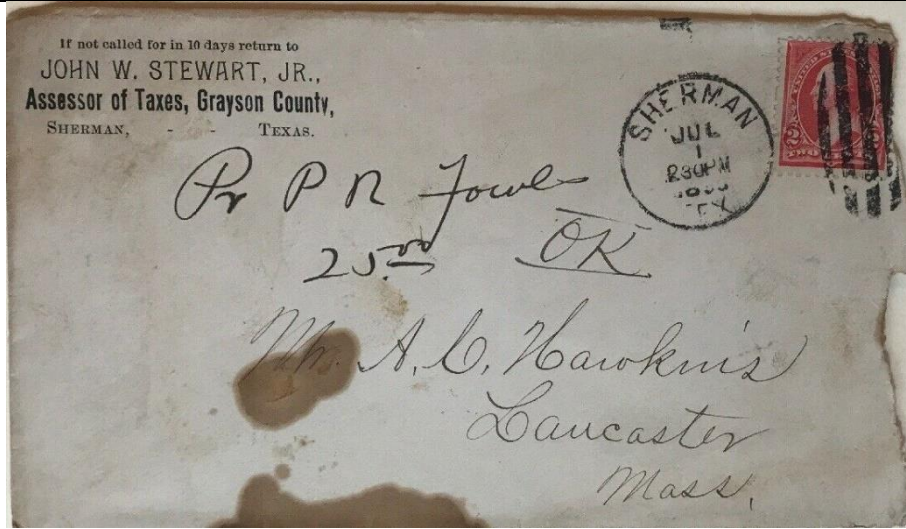 If not called for in 10 days return to
JOHN W. STEWART, JR.,
Assessor of Taxes, Grayson County,
SHERMAN, - - TEXAS.
SHERMAN
JUL
1
230PM
TEX
2
Pr P R Fowle
25.00 OK
A. C. Hawkins
Lancaster
Mass.